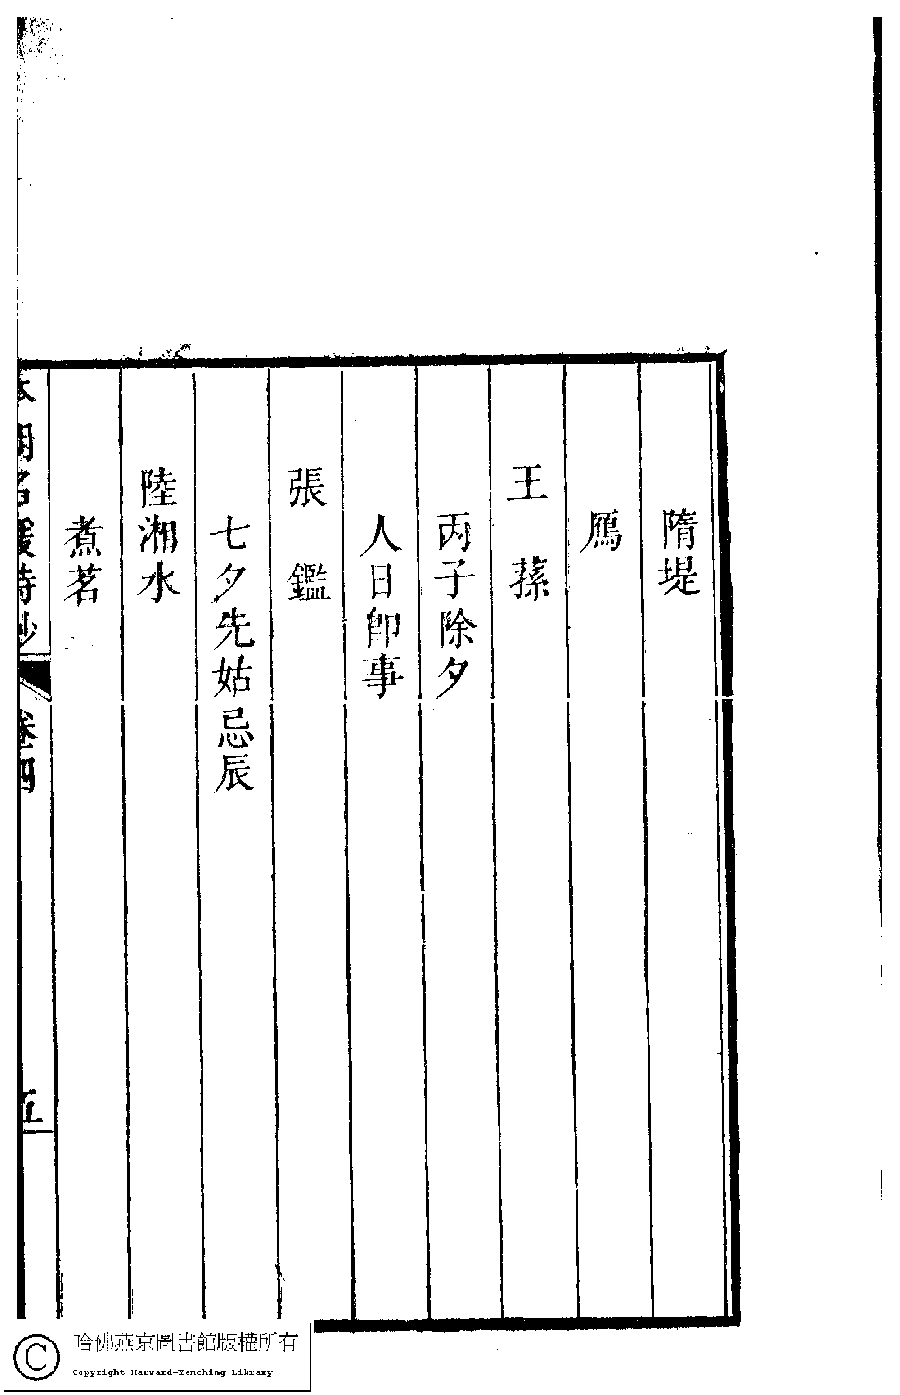 隋堤
鴈
王蓀
丙子除夕
人日卽事
張鑑
七夕先姑忌辰
陸湘水
煮茗
本朝名媛詩鈔
卷四
五
哈佛燕京圖書館版權所有
Copyright Harvard-Yenching Library